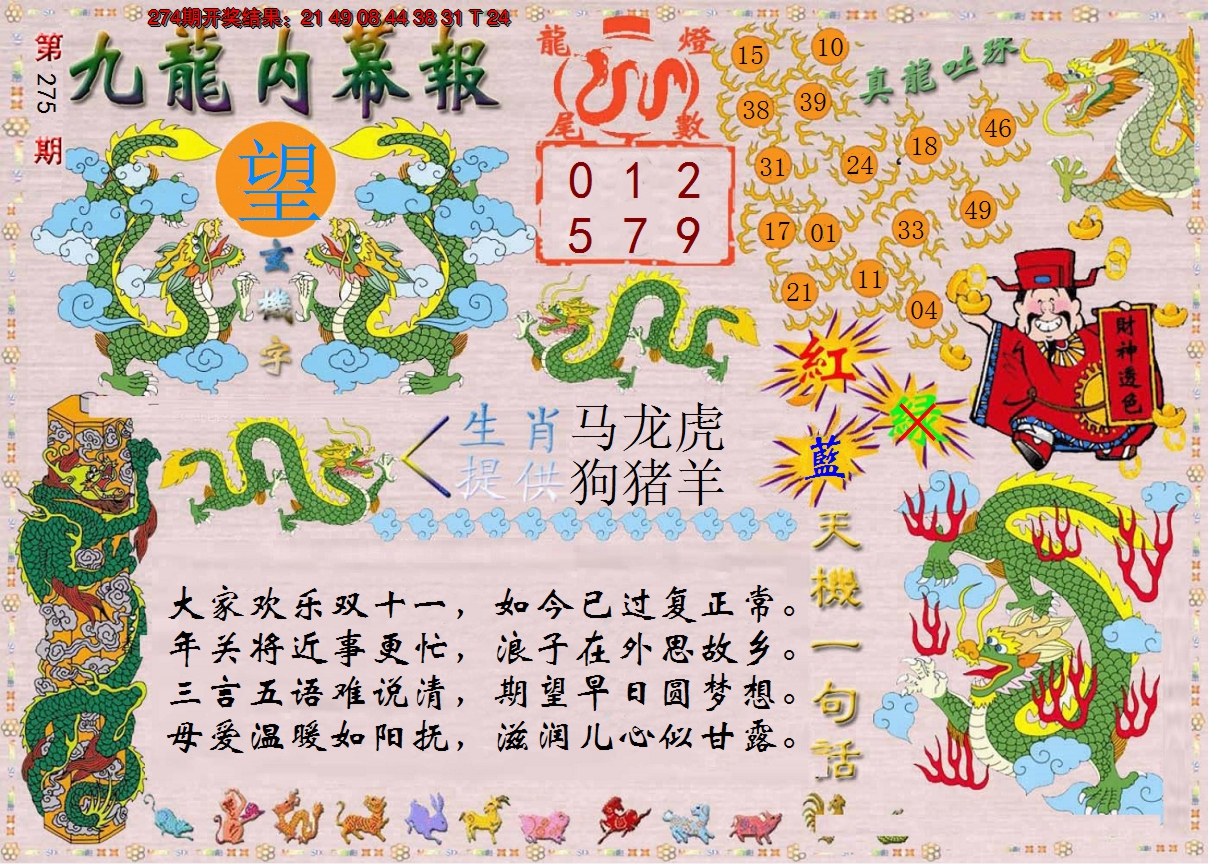 274期开奖结果：21 49 08 44 38 31 T 24
第275期
九龍内幕報
望
玄機字
龍燈尾數
0 1 2
5 7 9
真龍吐珠
15 10
38 39
31 24 18 46
17 01 33 49
21 11 04
紅
绿
藍
財神透色
生肖提供
马龙虎
狗猪羊
大家欢乐双十一，如今已过复正常。
年关将近事更忙，浪子在外思故乡。
三言五语难说清，期望早日圆梦想。
母爱温暖如阳抚，滋润儿心似甘露。
天機一句話